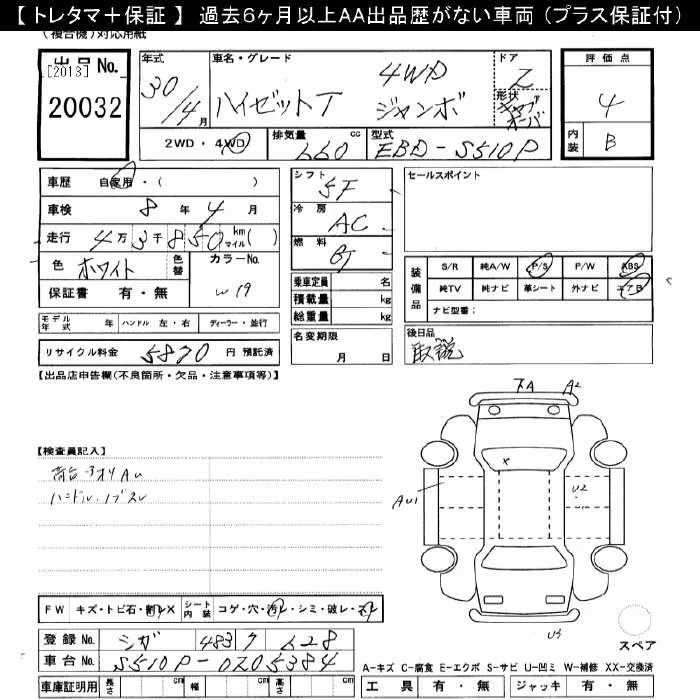 【 トレタマ＋保証 】 過去６ヶ月以上ＡＡ出品歴がない車両（プラス保証付）
（複合機）対応用紙
出品No.
[2013]
20032
年式
30/4月
車名・グレード
4WD
ハイゼットT ジャンボ
ドア
2
形状
キャブオーバ
評価点
4
内装
B
2WD・4WD
排気量
660 cc
型式
EBD-S510P
車歴 自家用・( )
車検 8年 4月
走行 4万 3千 850 km マイル ( )
色 ホワイト
色替
カラーNo.
W19
保証書 有・無
シフト
5F
冷房
AC
燃料
乗車定員 名
積載量 kg
総重量 kg
名変期限
月 日
セールスポイント
装備品
S/R 純A/W P/S P/W ABS
純TV 純ナビ 革シート 外ナビ エアB
ナビ型番：
後日品
取説
モデル年式 年 ハンドル 左・右 ディーラー・並行
リサイクル料金 5870 円 預託済
【出品店申告欄(不良箇所・欠品・注意事項等)】
【検査員記入】
荷台・アオリ AU
ハンドル・ノブスレ
下A A2
X
AU1
U2
U3
スペア
FW キズ・トビ石・割レX シート内装 コゲ・穴・汚レ・シミ・破レ・スレ
登録No. シガ 483 ク 628
車台No. S510P-0205384
車庫証明用 長さ cm 幅 cm 高さ cm
A-キズ C-腐食 E-エクボ S-サビ U-凹ミ W-補修 XX-交換済
工具 有・無 ジャッキ 有・無